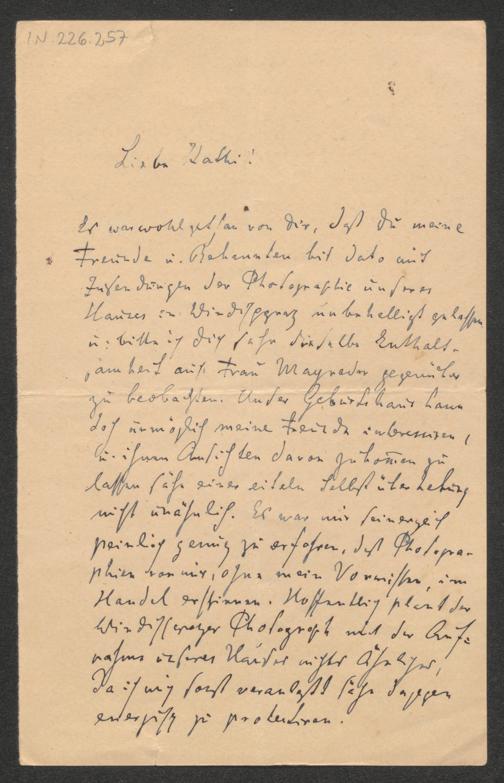 IN 226.257
Liebe Kathi!
Es war wohlgethan von dir, daß du meine
Freunde u. Bekannten bis dato mit
Zusendungen der Photographie unseres
Hauses in Windischgraz unbehelligt gelassen
u. bitte ich dich sehr dieselbe Enthalt-
samkeit auch Frau Mayreder gegenüber
zu beobachten. Unser Geburtshaus kann
doch unmöglich meine Freunde interessiren,
u. ihnen Ansichten davon zukom̄en zu
lassen sähe einer eiteln Selbstüberhebung
nicht unähnlich. Es war mir seinerzeit
peinlich genug zu erfahren, daß Photogra-
phien von mir, ohne mein Vorwissen, im
Handel erschienen. Hoffentlich plant der
Windischgrazer Photograph mit der Auf-
nahme unseres Hauses nichts Ähnliches,
da ich mich sonst veranlaßt sähe dagegen
energisch zu protestiren.